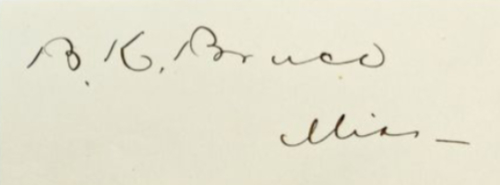 B. K. Bruce
Miss –